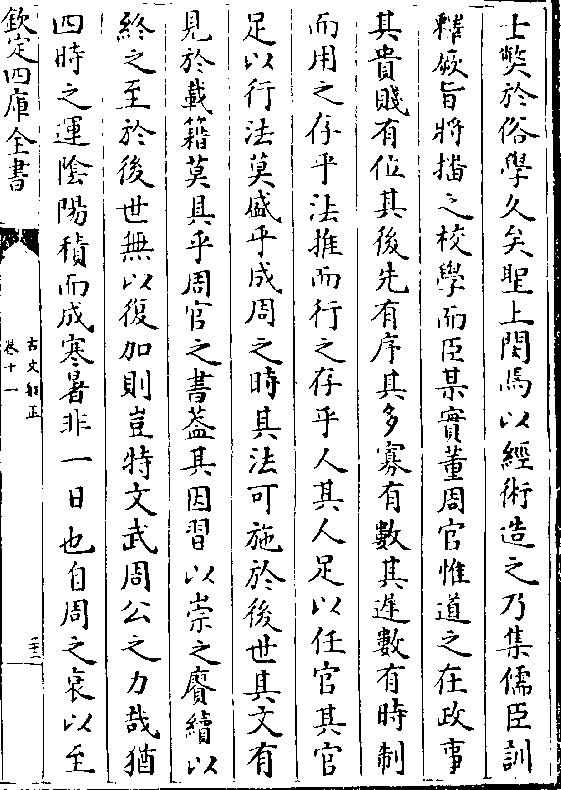 士獘於俗學久矣聖上閔焉以經術造之乃集儒臣訓
釋厥旨將播之校學而臣某實董周官惟道之在政事
其貴賤有位其後先有序其多寡有數其遲數有時制
而用之存乎法推而行之存乎人其人足以任官其官
足以行法莫盛乎成周之時其法可施於後世其文有
見於載籍莫具乎周官之書葢其因習以崇之賡續以
終之至於後世無以復加則豈特文武周公之力哉猶
四時之運陰陽積而成寒暑非一日也自周之衰以至
欽定四庫全書
古文雅正
卷十一
二十二